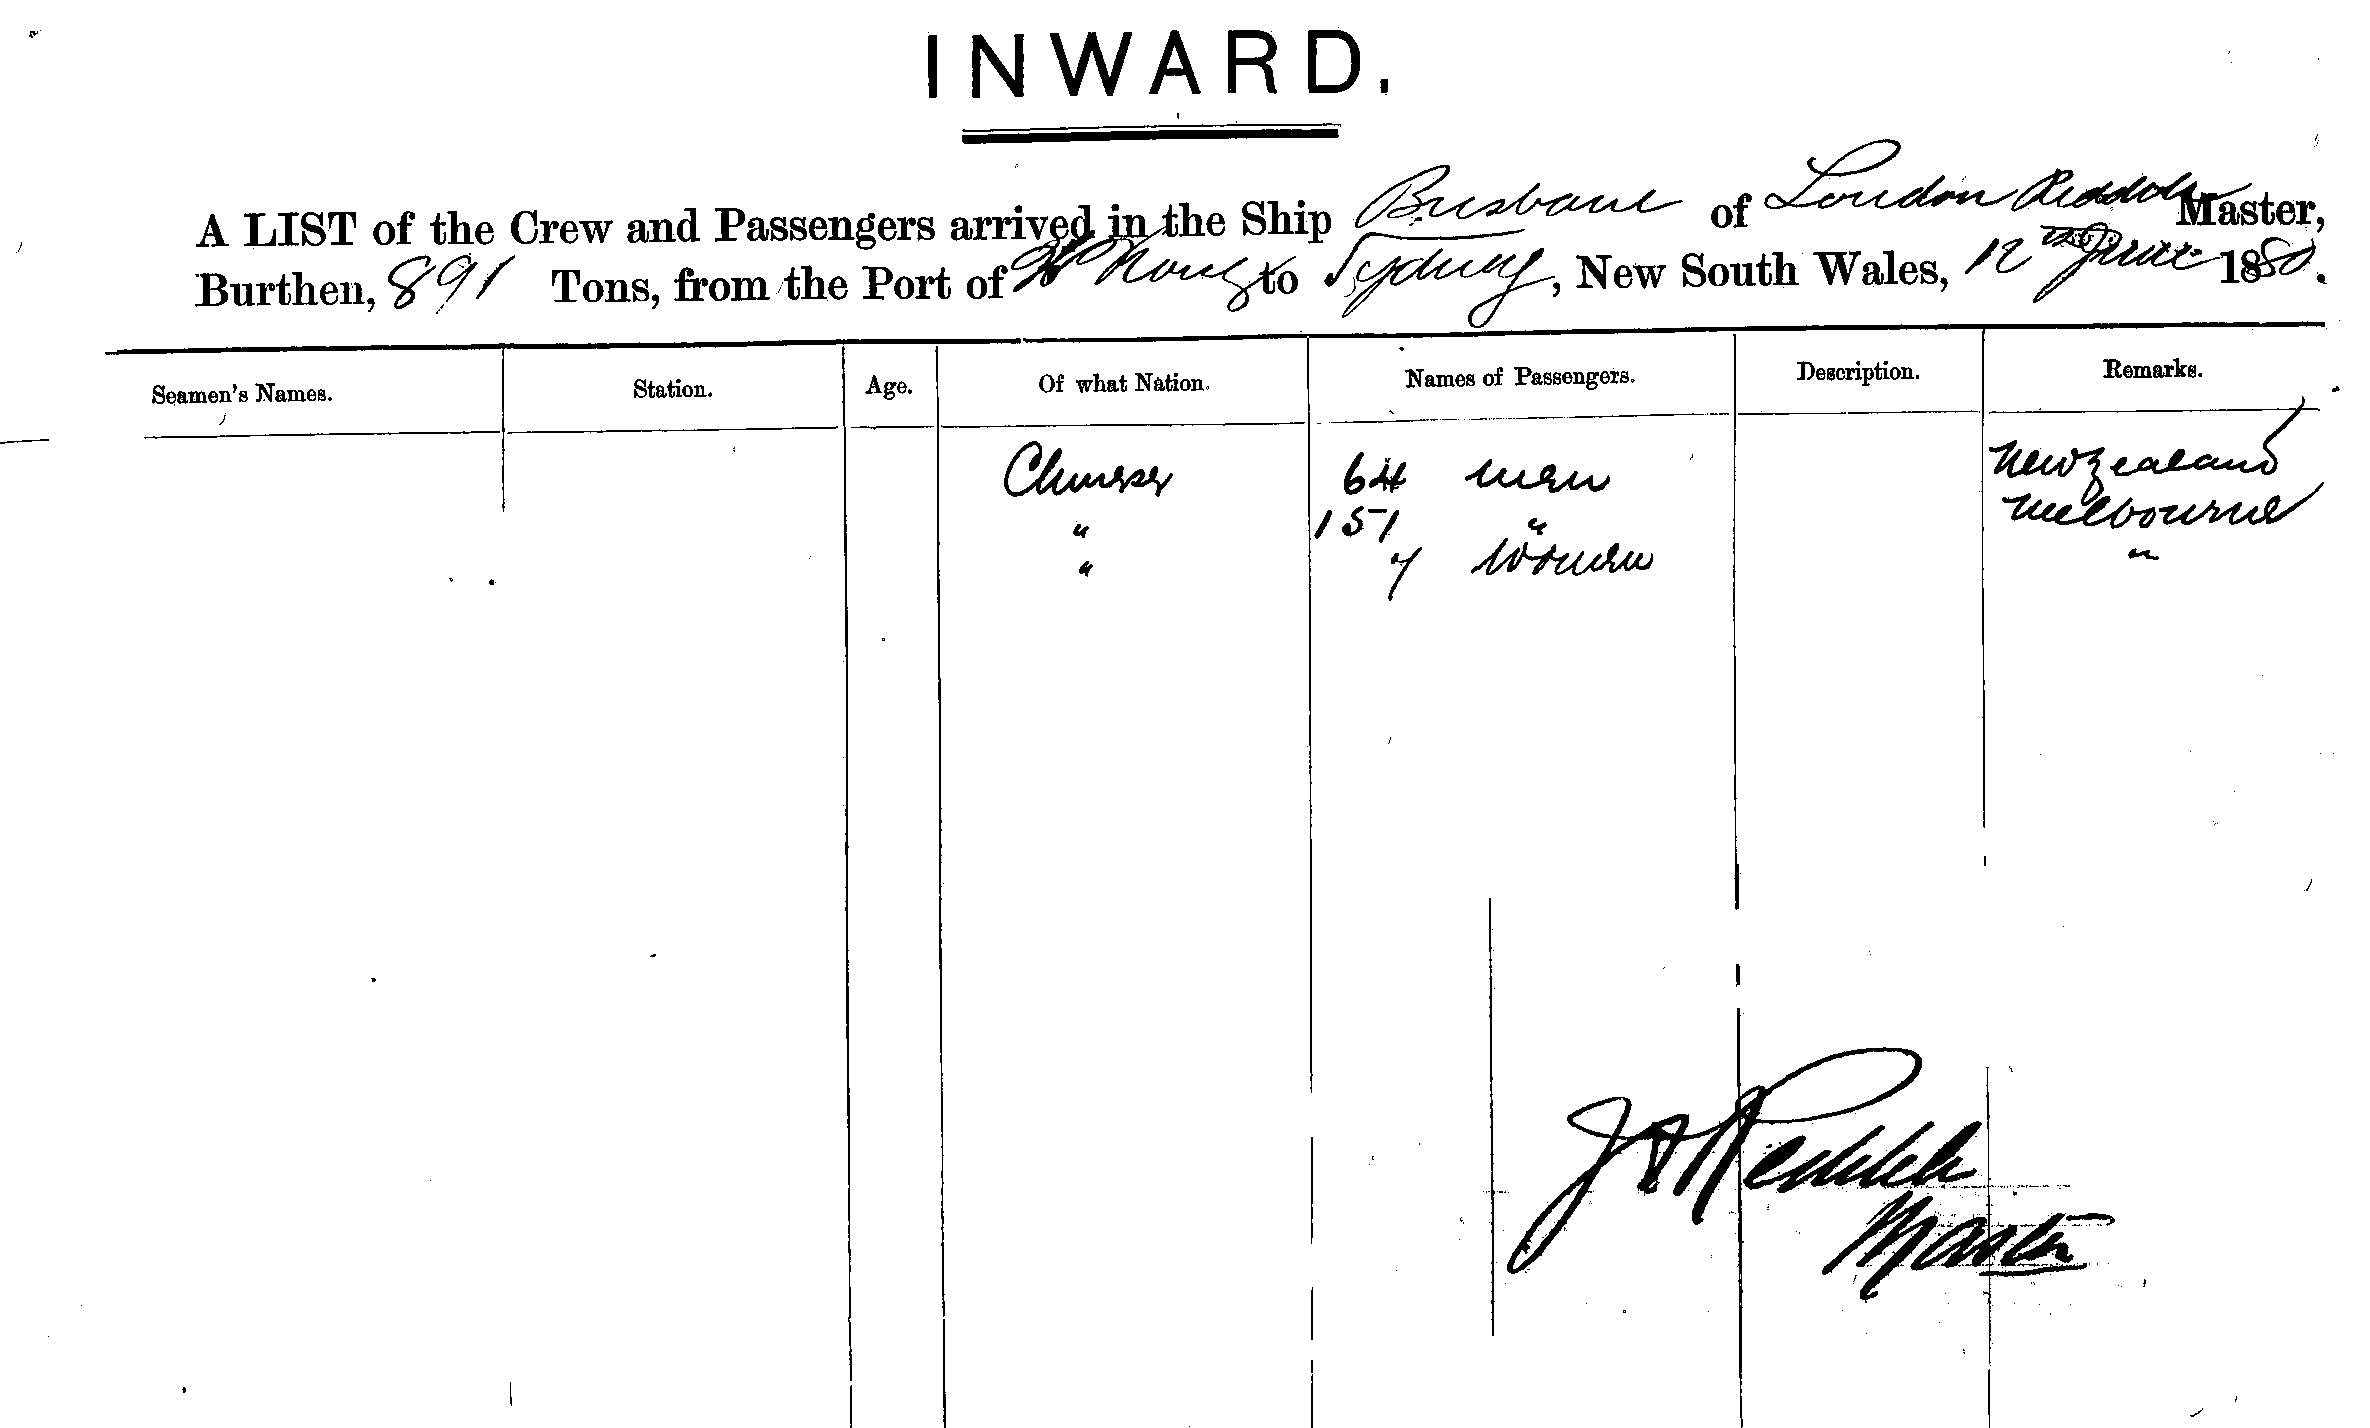 INWARD.
A LIST of the Crew and Passengers arrived in the Ship Brisbane of London Reddell Master,
Burthen, 891 Tons, from the Port of H Kong to Sydney, New South Wales, 12th June 1880.
Seamen's Names. Station. Age. Of what Nation. Names of Passengers. Description. Remarks.
Chinese 64 men New Zealand
" 151 " Melbourne
" 7 women "
Reddell
Master